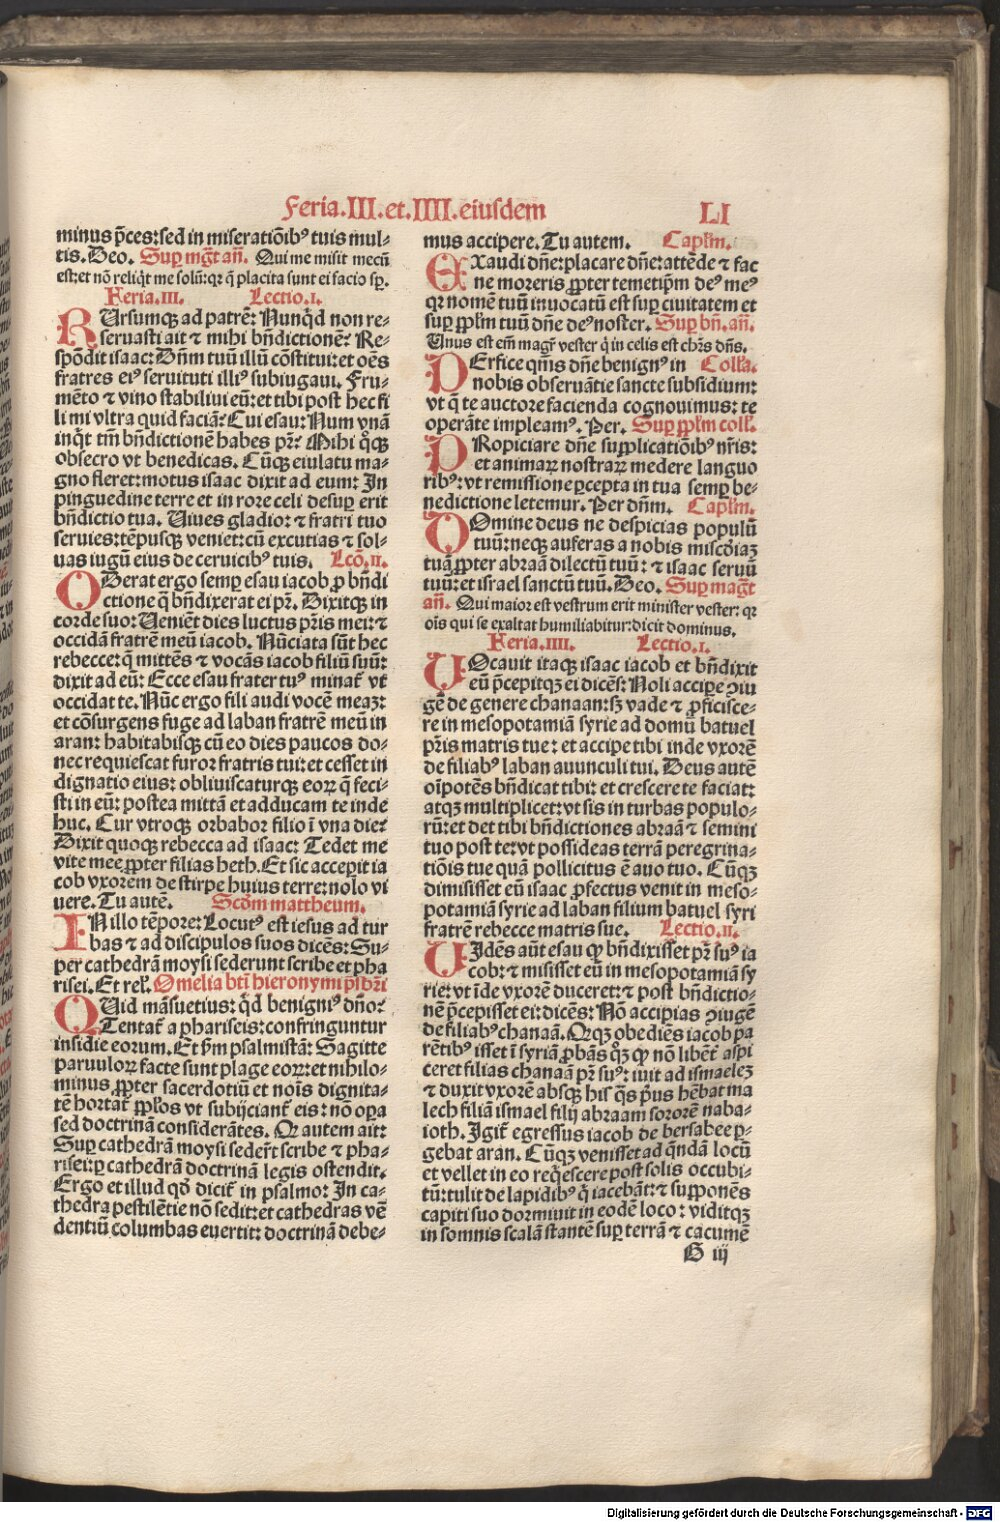 Feria.III.et.IIII.eiusdem
LI
minus p̄ces: sed in miseratiōibꝰ tuis mul-
tis. Deo. Suꝑ mg̃t an̄. Qui me misit mecū
est: et nō reliq̇t me solū: qꝛ q̄ placita sunt ei facio sꝑ.
Feria.III. Lectio.I.
RUrsumqꝫ ad patrē: Nunq̇d non re-
seruasti ait ⁊ mihi bn̄dictionē? Re-
spōdit isaac: Dn̄m tuū illū cōstitui: et oēs
fratres eiꝰ seruituti illiꝰ subiugaui. Fru-
mēto ⁊ vino stabiliui eū: et tibi post hec fi
li mi vltra quid faciā? Cui esau: Num vnā
inq̇t tm̄ bn̄dictionē habes pr̄? Mihi q̊qꝫ
obsecro vt benedicas. Cūqꝫ eiulatu ma-
gno fleret: motus isaac dixit ad eum: In
pinguedine terre et in rore celi desuꝑ erit
bn̄dictio tua. Uiues gladio: ⁊ fratri tuo
seruies: tēpusqꝫ veniet: cū excutias ⁊ sol-
uas iugū eius de ceruicibꝰ tuis. Lcō.II.
ODerat ergo semꝑ esau iacob ꝓ bn̄di
ctione q̄ bn̄dixerat ei pr̄. Dixitqꝫ in
corde suo: Ueniēt dies luctus pr̄is mei: ⁊
occidā fratrē meū iacob. Nūciata sūt hec
rebecce: q̄ mittēs ⁊ vocās iacob filiū suū:
dixit ad eū: Ecce esau frater tuꝰ minat᷑ vt
occidat te. Nūc ergo fili audi vocē meaꝫ:
et cōsurgens fuge ad laban fratrē meū in
aran: habitabisqꝫ cū eo dies paucos do-
nec requiescat furor fratris tui: et cesset in
dignatio eius: obliuiscaturqꝫ eoꝝ q̄ feci-
sti in eū: postea mittā et adducam te inde
huc. Cur vtroqꝫ orbabor filio ī vna die?
Dixit quoqꝫ rebecca ad isaac: Tedet me
vite mee ꝓpter filias heth. Et sic accepit ia
cob vxorem de stirpe huius terre: nolo vi
uere. Tu autē. Scd̄m mattheum.
IN illo tēpore: Locutꝰ est iesus ad tur
bas ⁊ ad discipulos suos dicēs: Su-
per cathedrā moysi sederunt scribe et pha
risei. Et rel̛. Omelia bt̄i hieronymi p̄sbr̄i
QUid māsuetius: q̇d benigniꝰ dn̄o?
Tentat᷑ a phariseis: confringuntur
insidie eorum. Et ẜm psalmistā: Sagitte
paruuloꝝ facte sunt plage eoꝝ: et nihilo-
minus ꝓpter sacerdotiū et nois̄ dignita-
tē hortat᷑ ppl̄os vt subijciant᷑ eis: nō oꝑa
sed doctrinā considerātes. Qꝛ autem ait:
Suꝑ cathedrā moysi seder̄t scribe ⁊ pha-
risei: ꝑ cathedrā doctrinā legis ostendit.
Ergo et illud qd̄ dicit᷑ in psalmo: In ca-
thedra pestilētie nō sedit: et cathedras vē
dentiū columbas euertit: doctrinā debe-
mus accipere. Tu autem. Capl̄m.
EXaudi dn̄e: placare dn̄e: attēde ⁊ fac
ne moreris ꝓpter temetip̄m deꝰ meꝰ
qꝛ nomē tuū inuocatū est suꝑ ciuitatem et
suꝑ ppl̄m tuū dn̄e deꝰ noster. Suꝑ bn̄. an̄.
Unus est em̄ magr̄ vester q̇ in celis est chr̄s dn̄s.
PErfice qm̄is dn̄e benignꝰ in Coll̄a.
nobis obseruātie sancte subsidium:
vt q̄ te auctore facienda cognouimus: te
operāte impleamꝰ. Per. Suꝑ ppl̄m coll̄.
PRopiciare dn̄e supplicatiōibꝰ nr̄is:
et animaꝝ nostraꝝ medere languo
ribꝰ: vt remissione ꝑcepta in tua semꝑ be-
nedictione letemur. Per dn̄m. Capl̄m.
DOmine deus ne despicias populū
tuū: neqꝫ auferas a nobis misc̄diaꝫ
tuā ꝓpter abraā dilectū tuū: ⁊ isaac seruū
tuū: et israel sanctū tuū. Deo. Suꝑ mag̃t
an̄. Qui maior est vestrum erit minister vester: qꝛ
oīs qui se exaltat humiliabitur: dicit dominus.
Feria.IIII. Lectio.I.
UOcauit itaqꝫ isaac iacob et bn̄dixit
eū p̄cepitqꝫ ei dicēs: Noli accipe ꝯiu
gē de genere chanaan: sꝫ vade ⁊ ꝓficisce-
re in mesopotamiā syrie ad domū batuel
pr̄is matris tue: et accipe tibi inde vxorē
de filiabꝰ laban auunculi tui. Deus autē
oīpotēs bn̄dicat tibi: et crescere te faciat:
atqꝫ multiplicet: vt sis in turbas populo-
rū: et det tibi bn̄dictiones abraā ⁊ semini
tuo post te: vt possideas terrā peregrina-
tiōis tue quā pollicitus ē auo tuo. Cūqꝫ
dimisisset eū isaac ꝓfectus venit in meso-
potamiā syrie ad laban filium batuel syri
fratrē rebecce matris sue. Lectio.II.
UIdēs aūt esau ꝙ bn̄dixisset pr̄ suꝰ ia
cob: ⁊ misisset eū in mesopotamiā sy
rie: vt īde vxorē duceret: ⁊ post bn̄dictio-
nē p̄cepisset ei: dicēs: Nō accipias ꝯiugē
de filiabꝰ chanaā. Qꝛqꝫ obediēs iacob pa
rētibꝰ isset ī syriā ꝓbās q̊ꝫ ꝙ nō libēt᷑ aspi
ceret filias chanaā pr̄ suꝰ: iuit ad ismaeleꝫ
⁊ duxit vxorē absqꝫ hisꝰ q̄s p̄us hēbat ma
lech filiā ismael filij abraam sororē naba-
ioth. Igit᷑ egressus iacob de bersabee ꝑ-
gebat aran. Cūqꝫ venisset ad q̄ndā locū
et vellet in eo req̇escere post solis occubi-
tū: tulit de lapidibꝰ q̇ iacebāt: ⁊ supponēs
capiti suo dormiuit in eodē loco: viditqꝫ
in somnis scalā stantē suꝑ terrā ⁊ cacumē
G iij
Digitalisierung gefördert durch die Deutsche Forschungsgemeinschaft - DFG